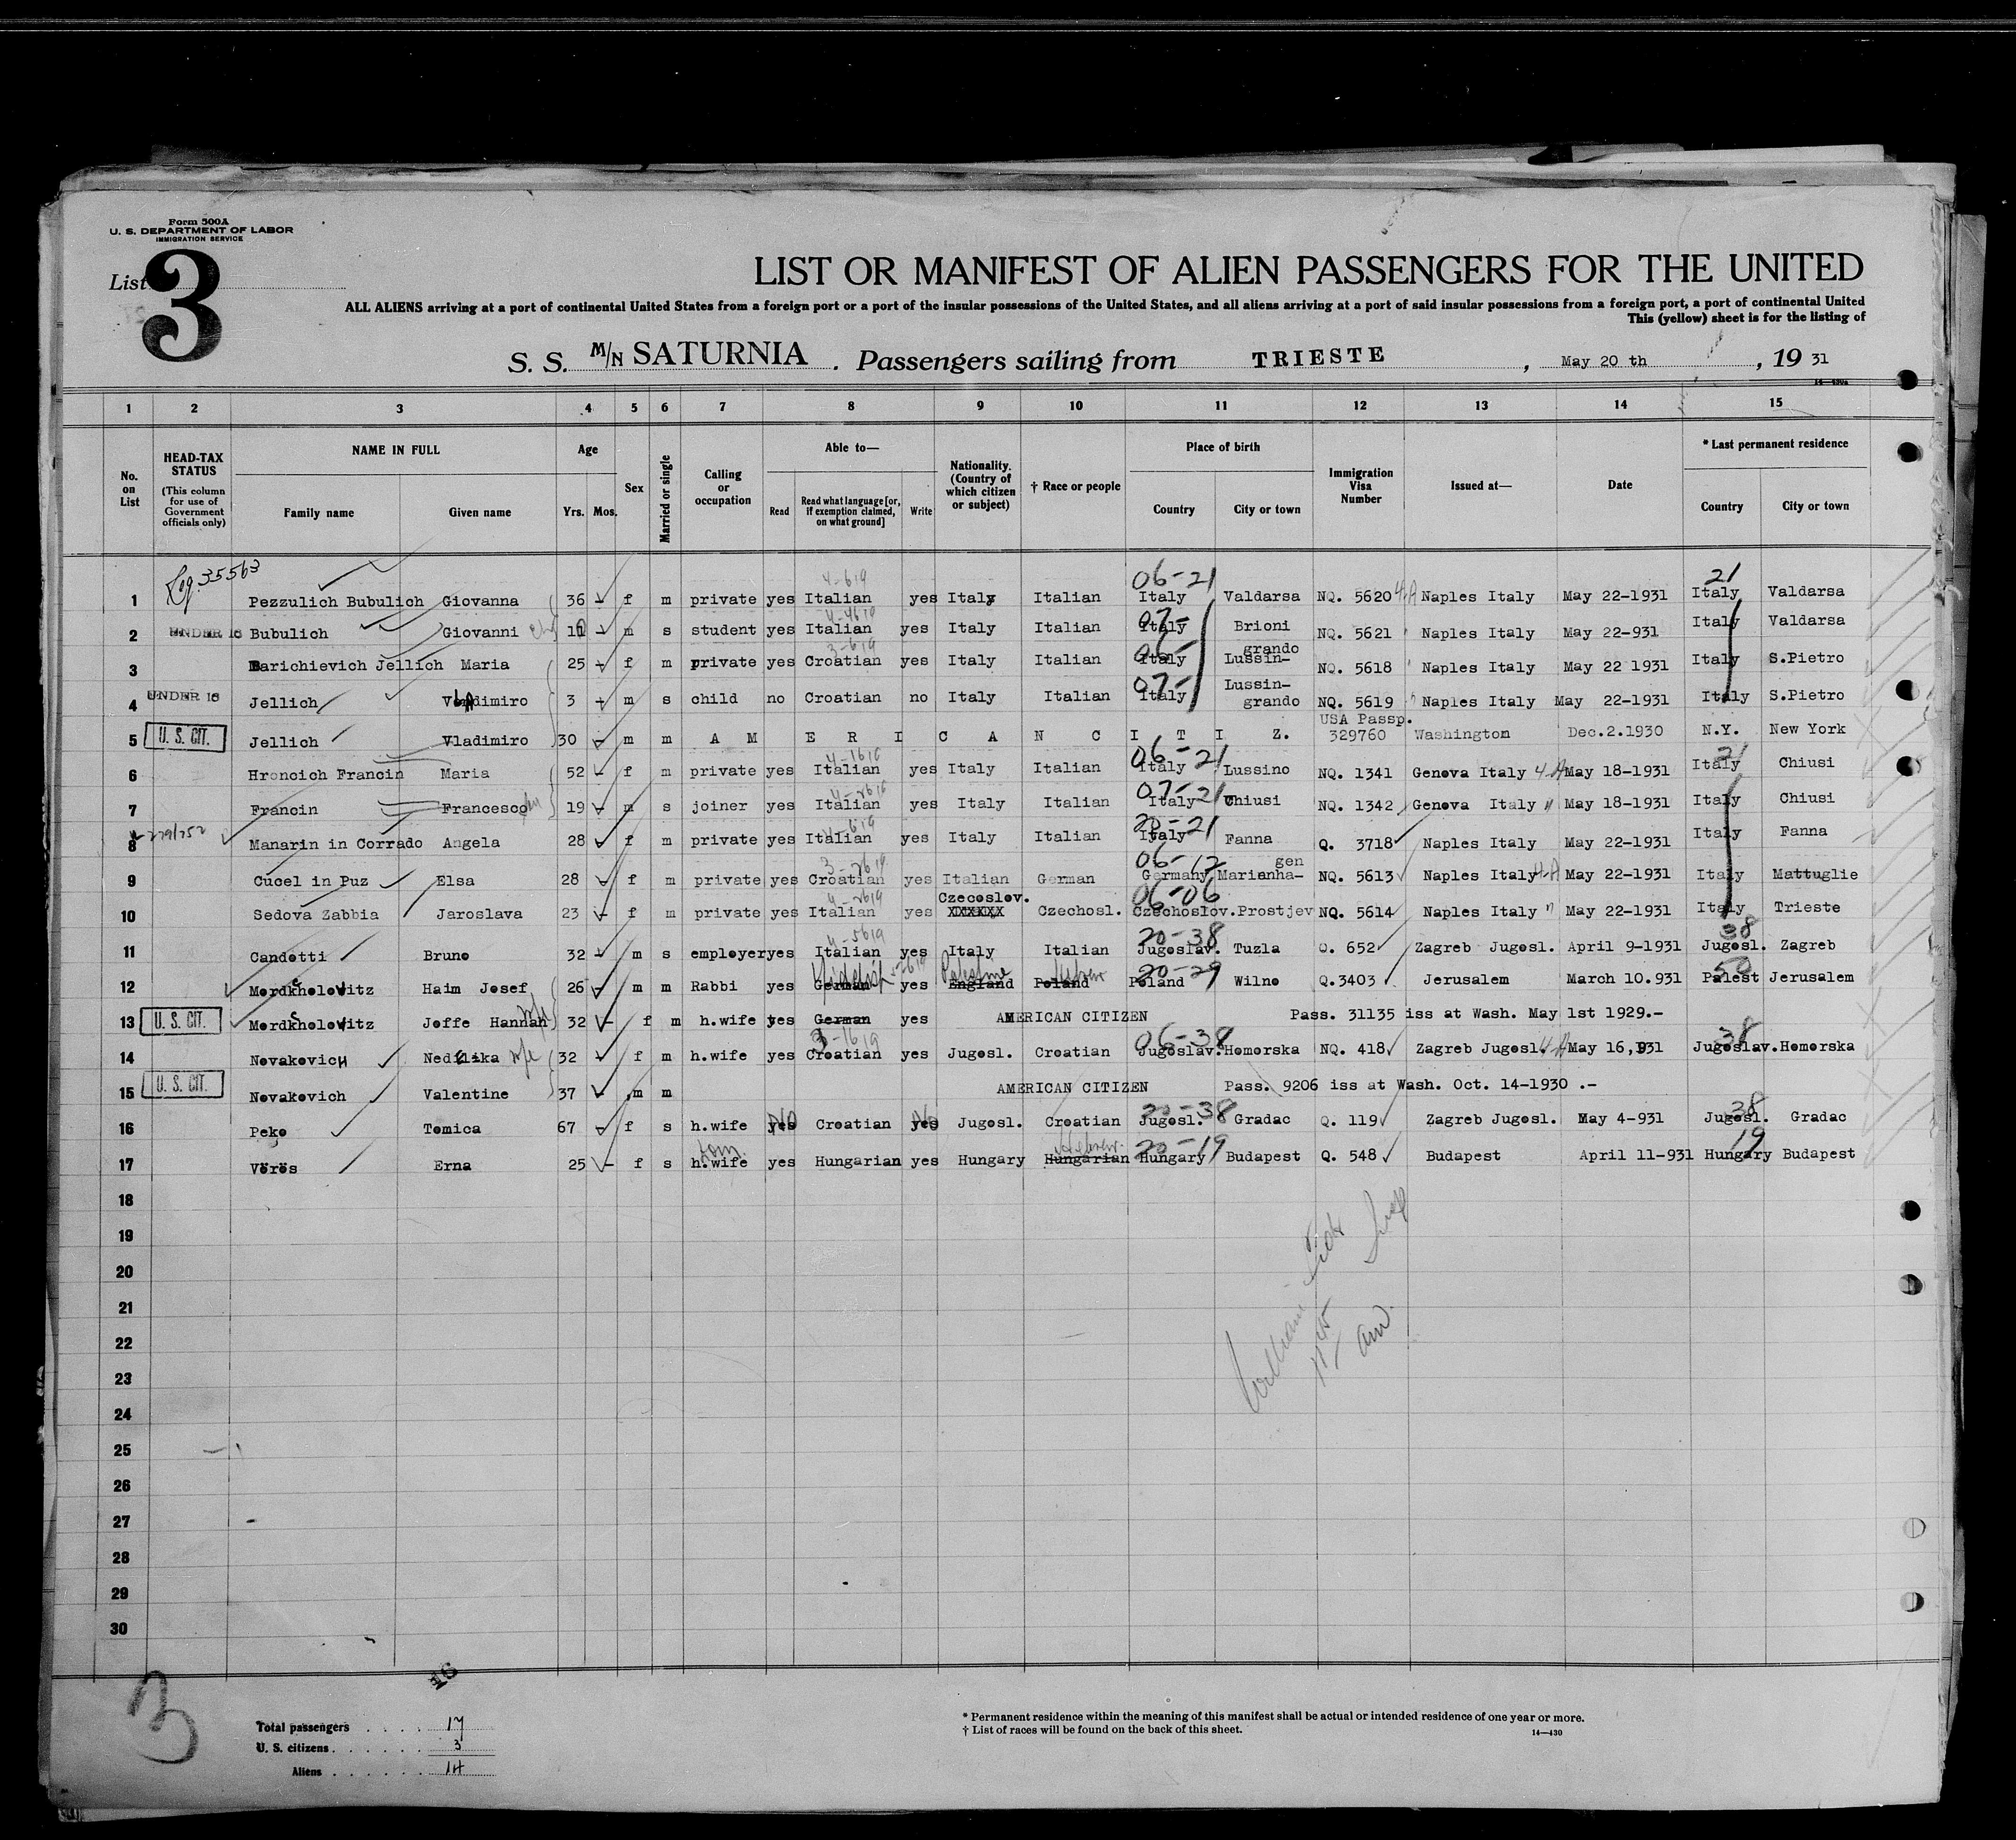 Form 500A
U. S. DEPARTMENT OF LABOR
IMMIGRATION SERVICE
List 3
LIST OR MANIFEST OF ALIEN PASSENGERS FOR THE UNITED
ALL ALIENS arriving at a port of continental United States from a foreign port or a port of the insular possessions of the United States, and all aliens arriving at a port of said insular possessions from a foreign port, a port of continental United
This (yellow) sheet is for the listing of
S. S. M/N SATURNIA . Passengers sailing from TRIESTE , May 20 th , 19 31
14—430a
1 2 3 4 5 6 7 8 9 10 11 12 13 14 15
No. on List
HEAD-TAX STATUS (This column for use of Government officials only)
NAME IN FULL
Family name Given name
Age
Yrs. Mos.
Sex
Married or single
Calling or occupation
Able to—
Read Read what language [or, if exemption claimed, on what ground] Write
Nationality. (Country of which citizen or subject)
† Race or people
Place of birth
Country City or town
Immigration Visa Number
Issued at—
Date
* Last permanent residence
Country City or town
35563 4-619 06-21 21
1 Pezzulich Bubulich Giovanna 36 - f m private yes Italian yes Italy Italian Italy Valdarsa NQ. 5620 4-A Naples Italy May 22-1931 Italy Valdarsa
07-
2 UNDER 16 Bubulich Giovanni - m s student yes Italian yes Italy Italian Italy Brioni NQ. 5621 Naples Italy May 22-931 Italy Valdarsa
3-619 06- grando
3 Barichievich Jellich Maria 25 - f m private yes Croatian yes Italy Italian Italy Lussin- NQ. 5618 Naples Italy May 22 1931 Italy S.Pietro
07- Lussin-
4 UNDER 16 Jellich Vladimiro 3 - m s child no Croatian no Italy Italian Italy grando NQ. 5619 Naples Italy May 22-1931 Italy S.Pietro
USA Passp.
5 U. S. CIT. Jellich Vladimiro 30 - m m A M E R I C A N C I T I Z. 329760 Washington Dec.2.1930 N.Y. New York
06-21 21
6 Hroncich Francin Maria 52 - f m private yes Italian yes Italy Italian Italy Lussino NQ. 1341 Genova Italy 4-A May 18-1931 Italy Chiusi
07-21
7 Francin Francesco 19 - m s joiner yes Italian yes Italy Italian Italy Chiusi NQ. 1342 Genova Italy " May 18-1931 Italy Chiusi
4-619 20-21
8 Manarin in Corrado Angela 28 - f m private yes Italian yes Italy Italian Italy Fanna Q. 3718 Naples Italy May 22-1931 Italy Fanna
06-12 gen
9 Cucel in Puz Elsa 28 - f m private yes Croatian yes Italian German Germany Marienha- NQ. 5613 Naples Italy 4-A May 22-1931 Italy Mattuglie
Czecoslov. 06-06
10 Sedova Zabbia Jaroslava 23 - f m private yes Italian yes XXXXXX Czechosl. Czechoslov. Prostjev NQ. 5614 Naples Italy " May 22-1931 Italy Trieste
4-5619 20-38 38
11 Candotti Bruno 32 - m s employer yes Italian yes Italy Italian Jugoslav. Tuzla Q. 652 Zagreb Jugosl. April 9-1931 Jugosl. Zagreb
Yiddish Palestine Hebrew 20-29 50
12 Mordkholovitz Haim Josef 26 m m Rabbi yes German yes England Poland Poland Wilno Q.3403 Jerusalem March 10.931 Palest Jerusalem
wife
13 U. S. CIT. Mordkholovitz Joffe Hannah 32 - f m h.wife yes German yes AMERICAN CITIZEN Pass. 31135 iss at Wash. May 1st 1929.-
3-1619 06-38 38
14 Novakovich Nedilika wife 32 - f m h.wife yes Croatian yes Jugosl. Croatian Jugoslav. Homorska NQ. 418 Zagreb Jugosl. 4-A May 16,931 Jugoslav. Homorska
15 U. S. CIT. Novakovich Valentine 37 - m m AMERICAN CITIZEN Pass. 9206 iss at Wash. Oct. 14-1930 .-
No No 20-38 38
16 Peko Tomica 67 - f s h.wife yes Croatian yes Jugosl. Croatian Jugosl. Gradac Q. 119 Zagreb Jugosl. May 4-931 Jugosl. Gradac
dom. Hebrew 20-19 19
17 Vörös Erna 25 - f s h.wife yes Hungarian yes Hungary Hungarian Hungary Budapest Q. 548 Budapest April 11-931 Hungary Budapest
18
19
20
21
22
23
24
25
26
27
28
29
30
William
3
16
Total passengers . . . . 17
U. S. citizens . . . . . . 3
Aliens . . . . . . 14
* Permanent residence within the meaning of this manifest shall be actual or intended residence of one year or more.
† List of races will be found on the back of this sheet.
14—430